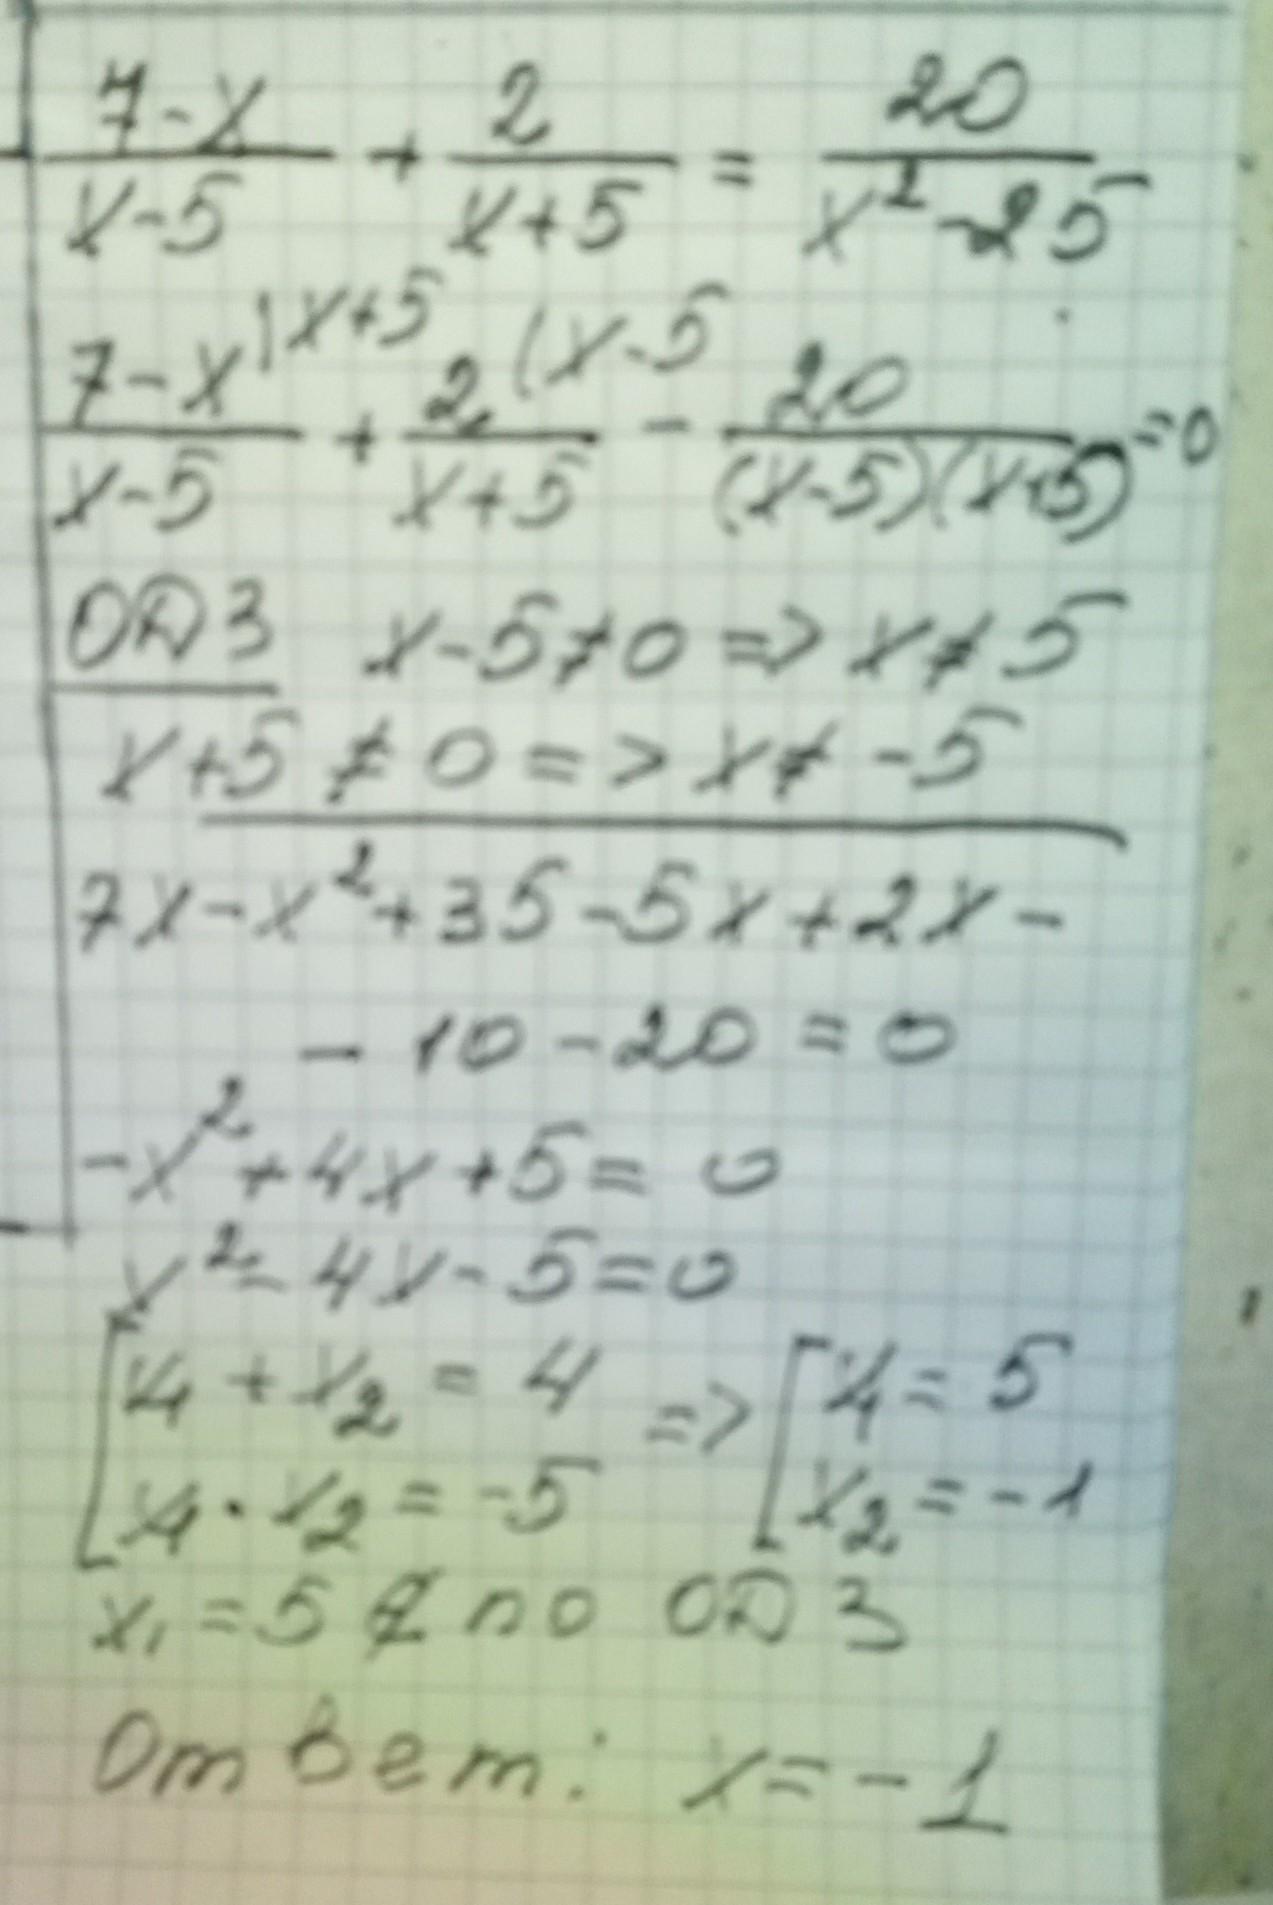 7-x/x-5 + 2/x+5 = 20/x²-25
7-x)x+5/x-5 + 2(x-5/x+5 - 20/(x-5)(x+5) =0
ОДЗ x-5≠0 => x≠5
x+5 ≠ 0 => x≠ -5
7x-x²+35-5x+2x-
- 10-20=0
-x²+4x+5= 0
x²-4x-5=0
[x₁+x₂=4 => [x₁=5
x₁·x₂=-5 x₂=-1
x₁=5 ∉ по ОДЗ
Ответ: x=-1